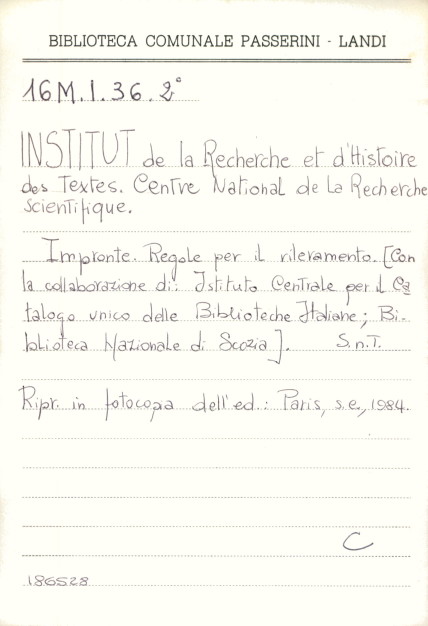 BIBLIOTECA COMUNALE PASSERINI - LANDI
16M.I.36.2°
INSTITUT de la Recherche et d'Histoire
des Textes. Centre National de la Recherche
scientifique.
Impronte. Regole per il rilevamento. [Con
la collaborazione di: Istituto Centrale per il Ca
talogo unico delle Biblioteche Italiane; Bi-
blioteca Nazionale di Scozia]. S.n.T.
Ripr. in fotocopia dell'ed.: Paris, s.e., 1984.
C
186528